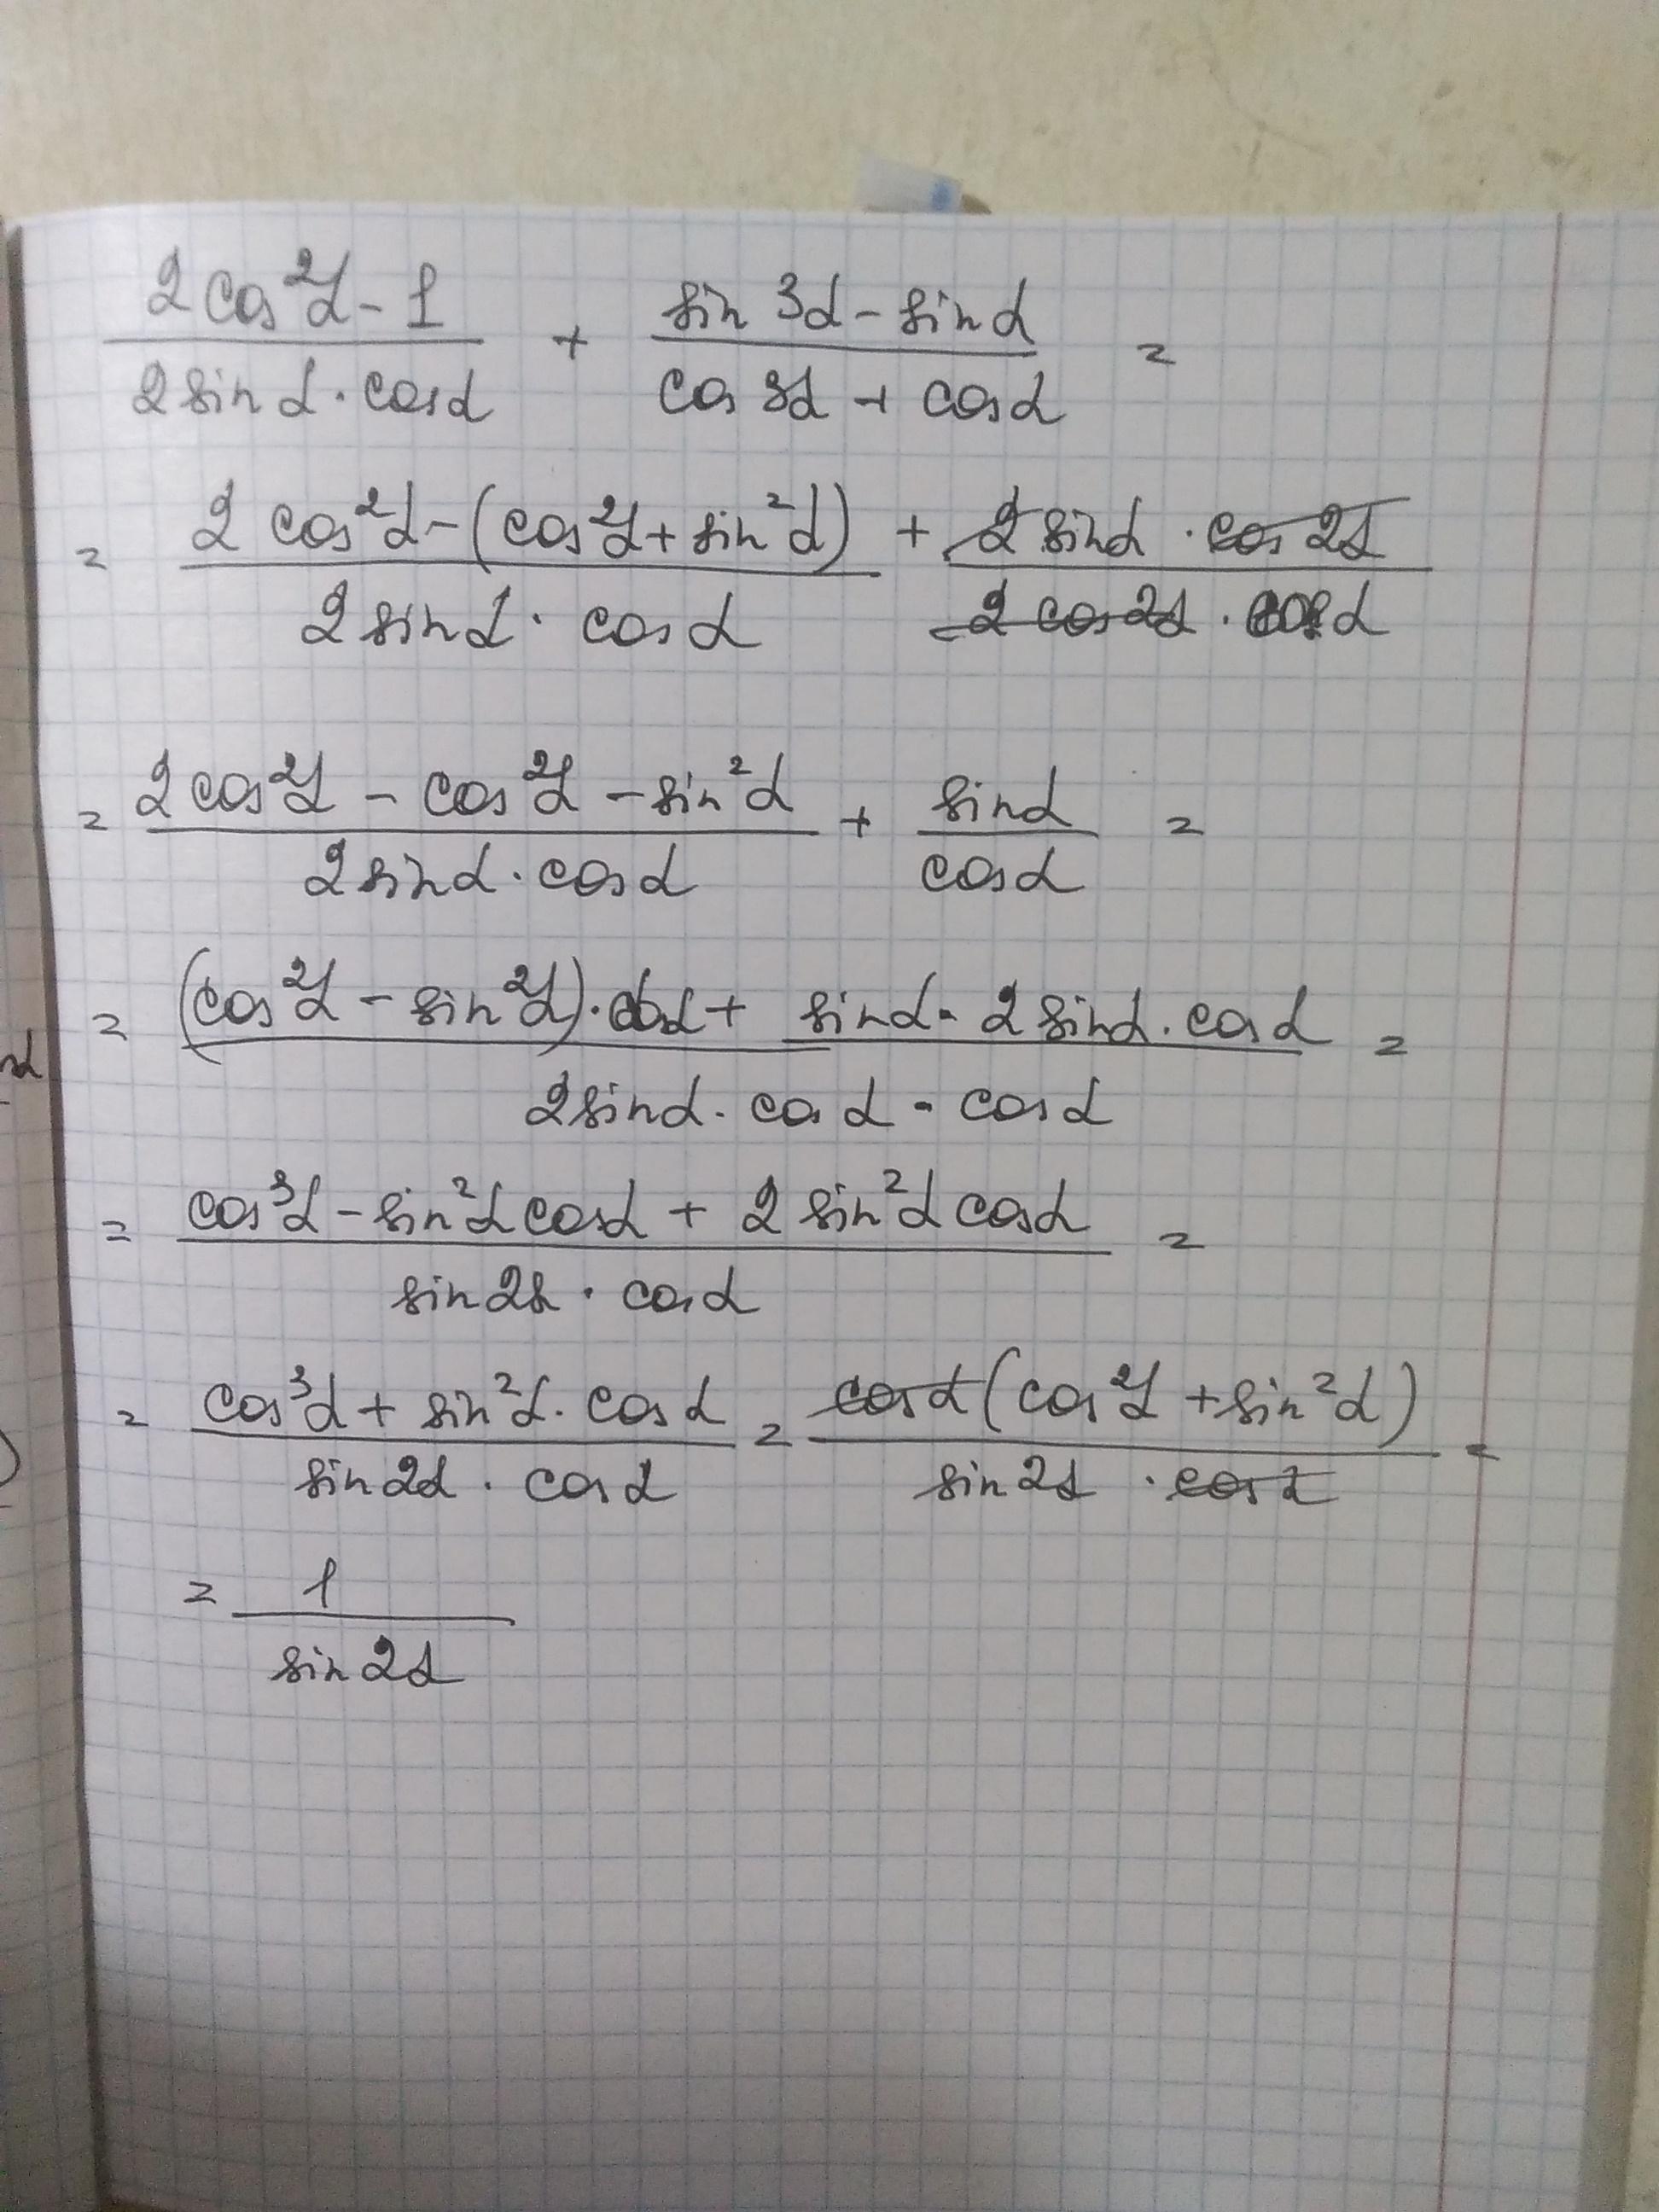 (2cos²α - 1)/(2sinα · cosα) + (sin3α - sinα)/(cos3α + cosα) =
= (2cos²α - (cos²α + sin²α))/(2sinα · cosα) + (2sinα · cos2α)/(2cos2α · cosα)
= (2cos²α - cos²α - sin²α)/(2sinα · cosα) + sinα/cosα =
= ((cos²α - sin²α) · cosα + sinα · 2sinα · cosα)/(2sinα · cosα · cosα) =
= (cos³α - sin²α cosα + 2sin²α cosα)/(sin2α · cosα) =
= (cos³α + sin²α · cosα)/(sin2α · cosα) = (cosα(cos²α + sin²α))/(sin2α · cosα) =
= 1/(sin2α)